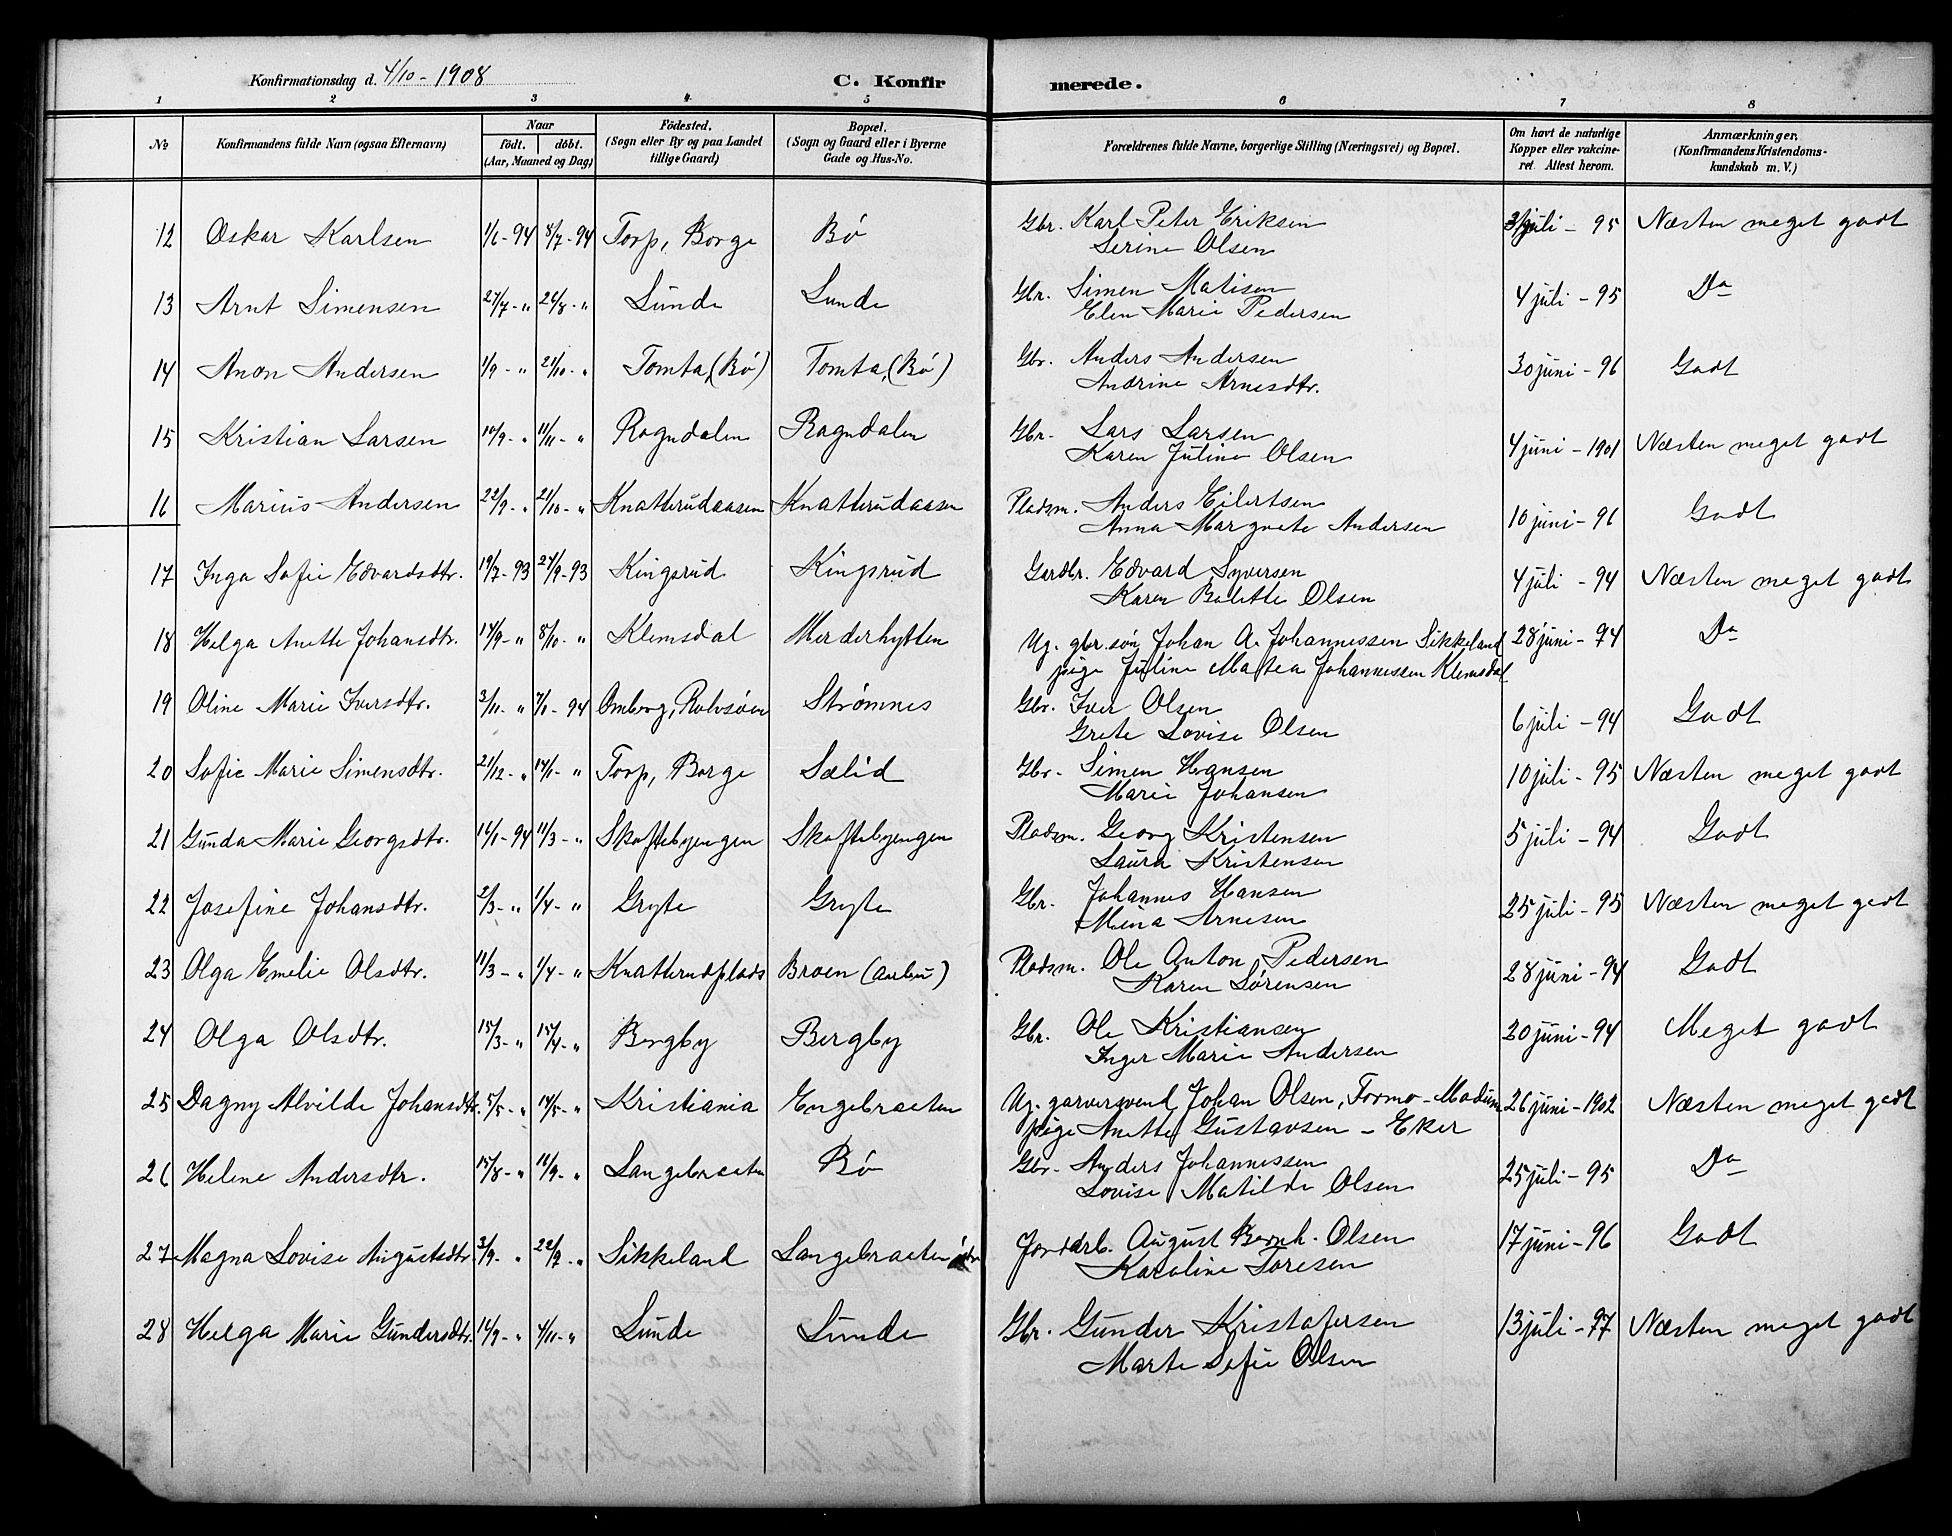 Konfirmationsdag d. 4/10 - 1908
C. Konfirmerede.
1 2 3 4 5 6 7 8
No
Konfirmandens fulde Navn (ogsaa Efternavn)
Naar
født. døbt.
(Aar, Maaned og Dag)
Fødested.
(Sogn eller By og paa Landet
tillige Gaard)
Bopæl.
(Sogn og Gaard eller i Byerne
Gade og Hus-No.
Forældrenes fulde Navne, borgerlige Stilling (Næringsvei) og Bopæl.
Om havt de naturlige
Kopper eller vakcine-
ret. Attest herom.
Anmærkninger.
(Konfirmandens Kristendoms-
kundskab m. V.)
12 Oskar Karlsen 1/6 - 94 8/7 - 94 Torp, Borge Bø Gbr. Karl Peter Eriksen juli - 95 Næsten meget godt
Serine Olsen
13 Arnt Simensen 27/7 - " 26/8 - " Lunde Lunde Gbr. Simen Matisen 4 juli - 95 Do
Elen Marie Pedersen
14 Anon Andersen 1/9 - " 21/10 - " Tomta, (Bø) Tomta, (Bø) Gbr. Anders Andersen 30 juni - 96 Godt
Andrine Arnesdtr.
15 Kristian Larsen 10/9 - " 11/11 - " Rogndalen Rogndalen Gbr. Lars Larsen 4 juni - 1901 Næsten meget godt
Karen Juline Olsen
16 Marius Andersen 22/9 - " 21/10 - " Knatterudaasen Knatterudaasen Pladsm. Anders Eilertsen 10 juni - 96 Godt
Anna Margrete Andersen
17 Inga Sofie Edvardsdtr. 19/7 - 93 24/9 - 93 Kingsrud Kingsrud Gardbr. Edvard Syversen 4 juli - 94 Næsten meget godt
Karen Bolette Olsen
18 Helga Anette Johansdtr. 14/9 - " 8/10 - " Klemsdal Merderhytten Ug. gbr. søn Johan A. Johannessen Sikkeland 28 juni - 94 Do
pige Juline Matea Johannessen Klemsdal
19 Oline Marie Iversdtr. 3/11 - " 7/1 - 94 Omberg, Rolvsøen Strømnes Gbr. Iver Olsen 6 juli - 94 Godt
Grete Lovise Olsen
20 Sofie Marie Simensdtr. 21/12 - " 14/1 - " Torp, Borge Sælid Gbr. Simen Hansen 10 juli - 95 Næsten meget godt
Marie Johansen
21 Gunda Marie Georgsdtr. 16/1 - 94 11/3 - " Skoftebyengen Skoftebyengen Pladsm. Georg Kristensen 5 juli - 94 Godt
Laura Kristensen
22 Josefine Johansdtr. 2/3 - " 1/4 - " Gryte Gryte Gbr. Johannes Hansen 25 juli - 95 Næsten meget godt
Mina Arnesen
23 Olga Emelie Olsdtr. 11/3 - " 1/4 - " Knatterudplads Broen Pladsm. Ole Anton Pedersen 28 juni - 94 Godt
Karen Sørensen
24 Olga Olsdtr. 15/3 - " 15/4 - " Bergby Bergby Gbr. Ole Kristiansen 20 juni - 94 Meget godt
Inger Marie Andersen
25 Dagny Alvilde Johansdtr. 5/5 - " 14/5 - " Kristiania Engebraaten Ug. garversvend Johan Olsen, Formo - Modum 26 juni - 1902 Næsten meget godt
pige Anette Gustavsen - Eker
26 Helene Andersdtr. 15/8 - " 16/9 - " Langebraaten Bø Gbr. Anders Johannessen 25 juli - 95 Do
Lovise Matilde Olsen
27 Magna Lovise Augustsdtr. 2/9 - " 22/9 - " Sikkeland Langebraaten Jordarb. August Bernh. Olsen 17 juni - 96 Godt
Karoline Toresen
28 Helga Marie Gundersdtr. 16/9 - " 4/11 - " Lunde Lunde Gbr. Gunder Kristofersen 13 juli - 97 Næsten meget godt
Marte Sofie Olsen